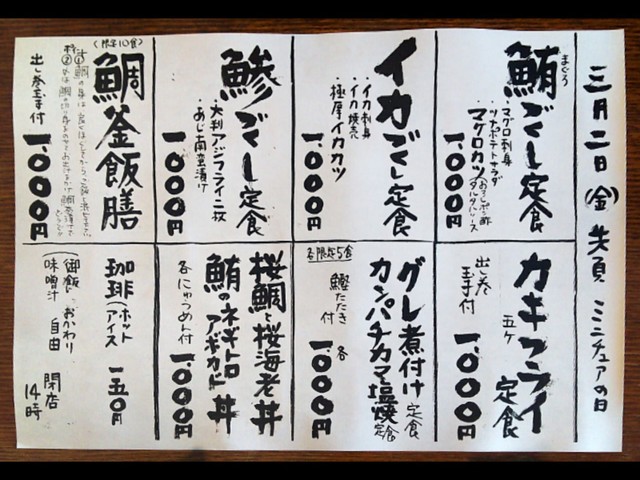 三月二日(金)先負 ミニチュアの日
鮪づくし定食
まぐろ
・マグロ刺身
・ツナポテトサラダ
・マグロカツ
(おろしポン酢
タルタルソース
一、〇〇〇円
イカづくし定食
・イカ刺身
・イカ焼売
・極厚イカカツ
一、〇〇〇円
鯵づくし定食
・大判アジフライ二枚
・あじ南蛮漬け
一、〇〇〇円
(限定10食)
鯛釜飯膳
出し巻玉子付
一、〇〇〇円
カキフライ定食
五ケ
出し巻
玉子付
一、〇〇〇円
各限定5食
グレ煮付け定食
カンパチカマ塩焼定食
鰹たたき付
各
一、〇〇〇円
桜鯛と桜海老丼
鮪のネギトロアボカド丼
各にゅうめん付
一、〇〇〇円
珈琲(ホット
アイス
一五〇円
(御飯
味噌汁
おかわり
自由
閉店
14時